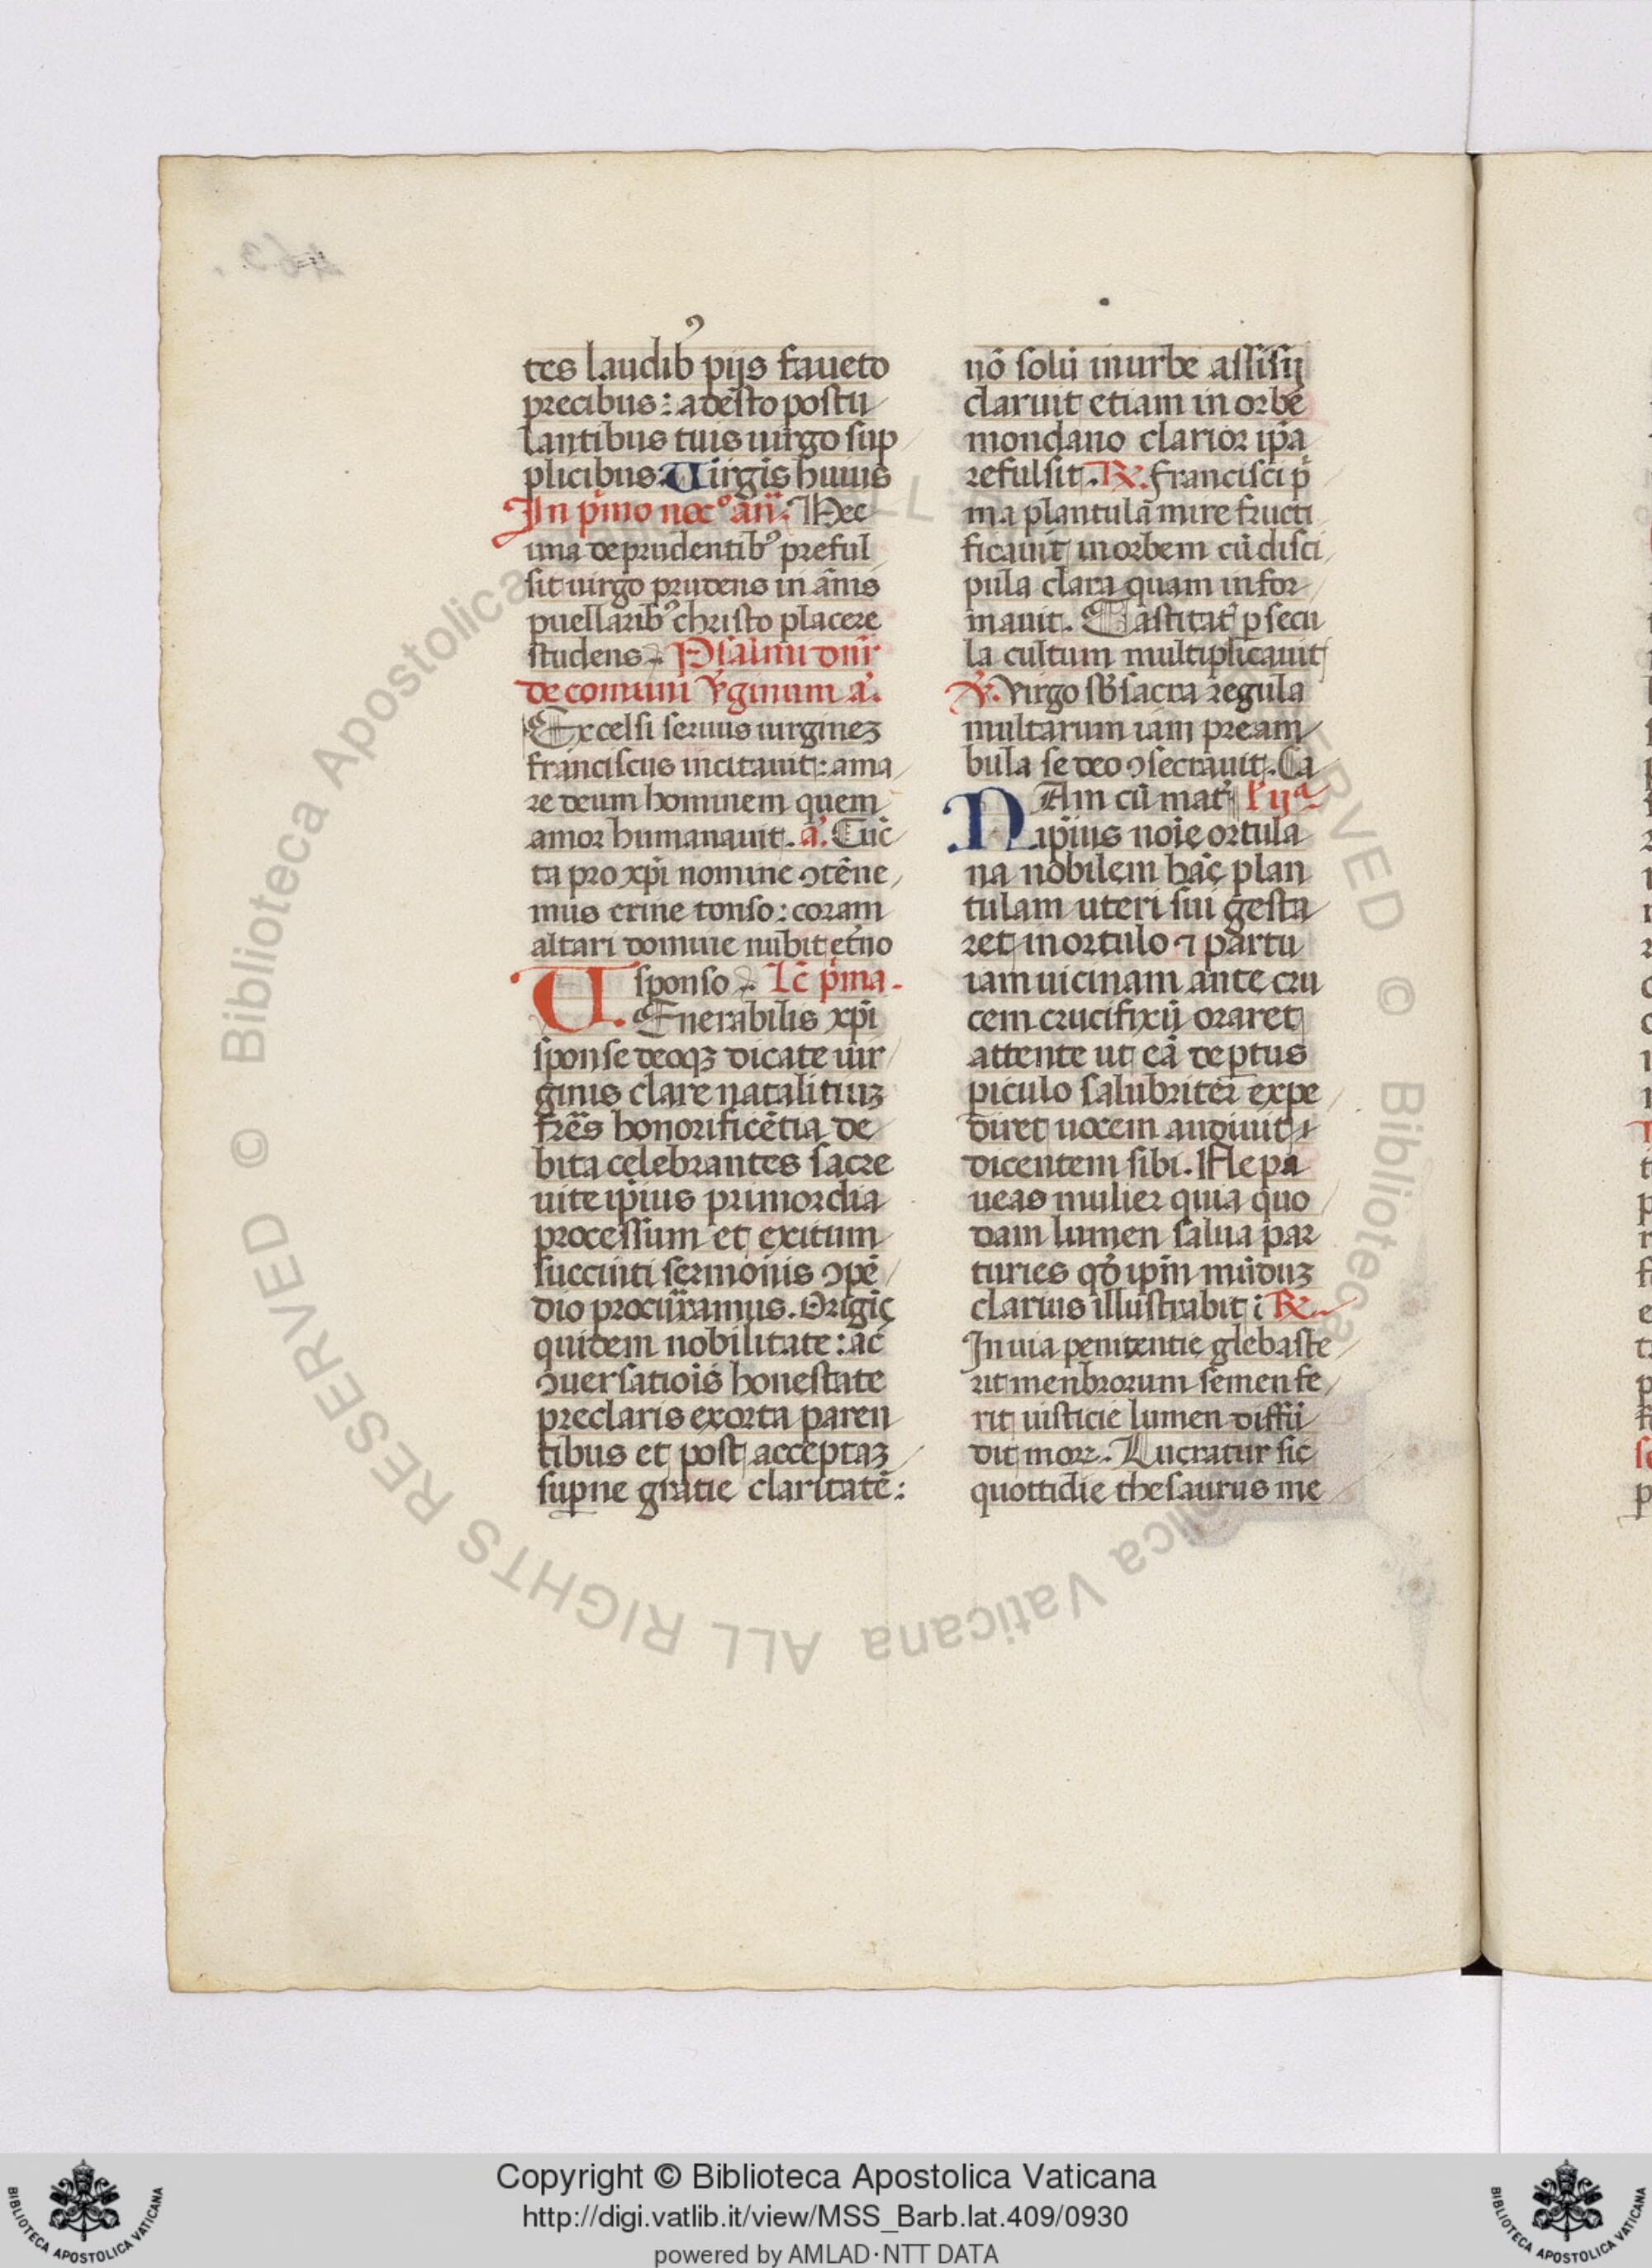 tes laudibꝰ pijs faueto
precibus: adesto postu
lantibus tuis uirgo sup
plicibus. Uirgīs huius
In pͥmo nocᵒ an̄. Hec
una de prudentibꝰ preful
sit uirgo prudens in ānis
puellaribꝰ christo placere
studens. Psalmi dn̄r
de comuni v̓ginum a̓.
Excelsi seruus uirginez
franciscus incitauit: ama
re deum hominem quem
amor humanauit. a̓. Cūc
ta pro xp̄i nomine ↄtēne
mus crine tonso: coram
altari domine nubit et̓no
sponso. Lc̄ pͥma.
Uenerabilis xp̄i
sponse deoqꝫ dicate uir
ginis clare natalitiuꝫ
fr̄es honorificētia de
bita celebrantes sacre
uite ip̄ius primordia
processum et exitum
succinti sermonis ↄpē
dio procur̄amus. Origīe
quidem nobilitate: ac
ↄuersatiōis honestate
preclaris exorta paren
tibus et post acceptaꝫ
suꝑne gratie claritatē:
nō solū in urbe assisij
claruit etiam in orbe
mondano clarior ip̄a
refulsit. ℟. francisci pͥ
ma plantulā mire fructi
ficauit in orbem cū disci
pula clara quam infor
mauit. Castitat̓ ꝑ secu
la cultum multiplicauit
℣. Virgo sb̓ sacra regula
multarum iam pream
bula se deo ↄsecrauit. Ca
NAm cū mat̓ lͦ ijᵃ
ip̄ius noīe ortula
na nobilem hāc plan
tulam uteri sui gesta
ret in ortulo ⁊ partu
iam uicinam ante cru
cem crucifixū oraret
attente ut eā de ptus
ꝑiculo salubriter expe
diret uocem audiuit
dicentem sibi. Ne pa
ueas mulier quia quo
dam lumen salua par
turies qd̓ ip̄m mūduꝫ
clarius illustrabit: ℟.
In uia penitentie glebas te
rit menbrorum semen fe
rit iusticie lumen diffū
dit mor. Lucratur sic
quottidie thesaurus me
463.
Copyright © Biblioteca Apostolica Vaticana
http://digi.vatlib.it/view/MSS_Barb.lat.409/0930
powered by AMLAD·NTT DATA
BIBLIOTECA APOSTOLICA VATICANA
BIBLIOTECA APOSTOLICA VATICANA